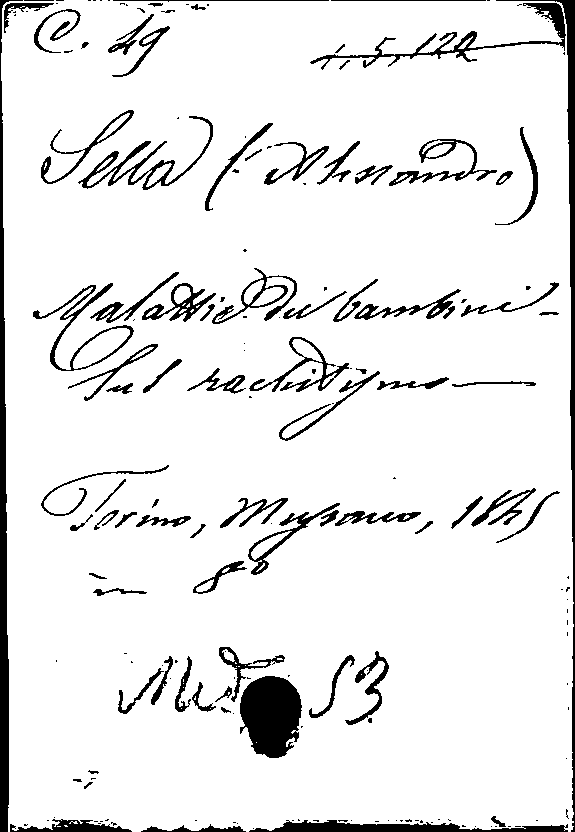 C. 49 1, 5, 122
Sella (: Alessandro)
Malattie dei bambini -
Sul rachitismo
Torino, Mussano, 1845
in 8º
Med 53